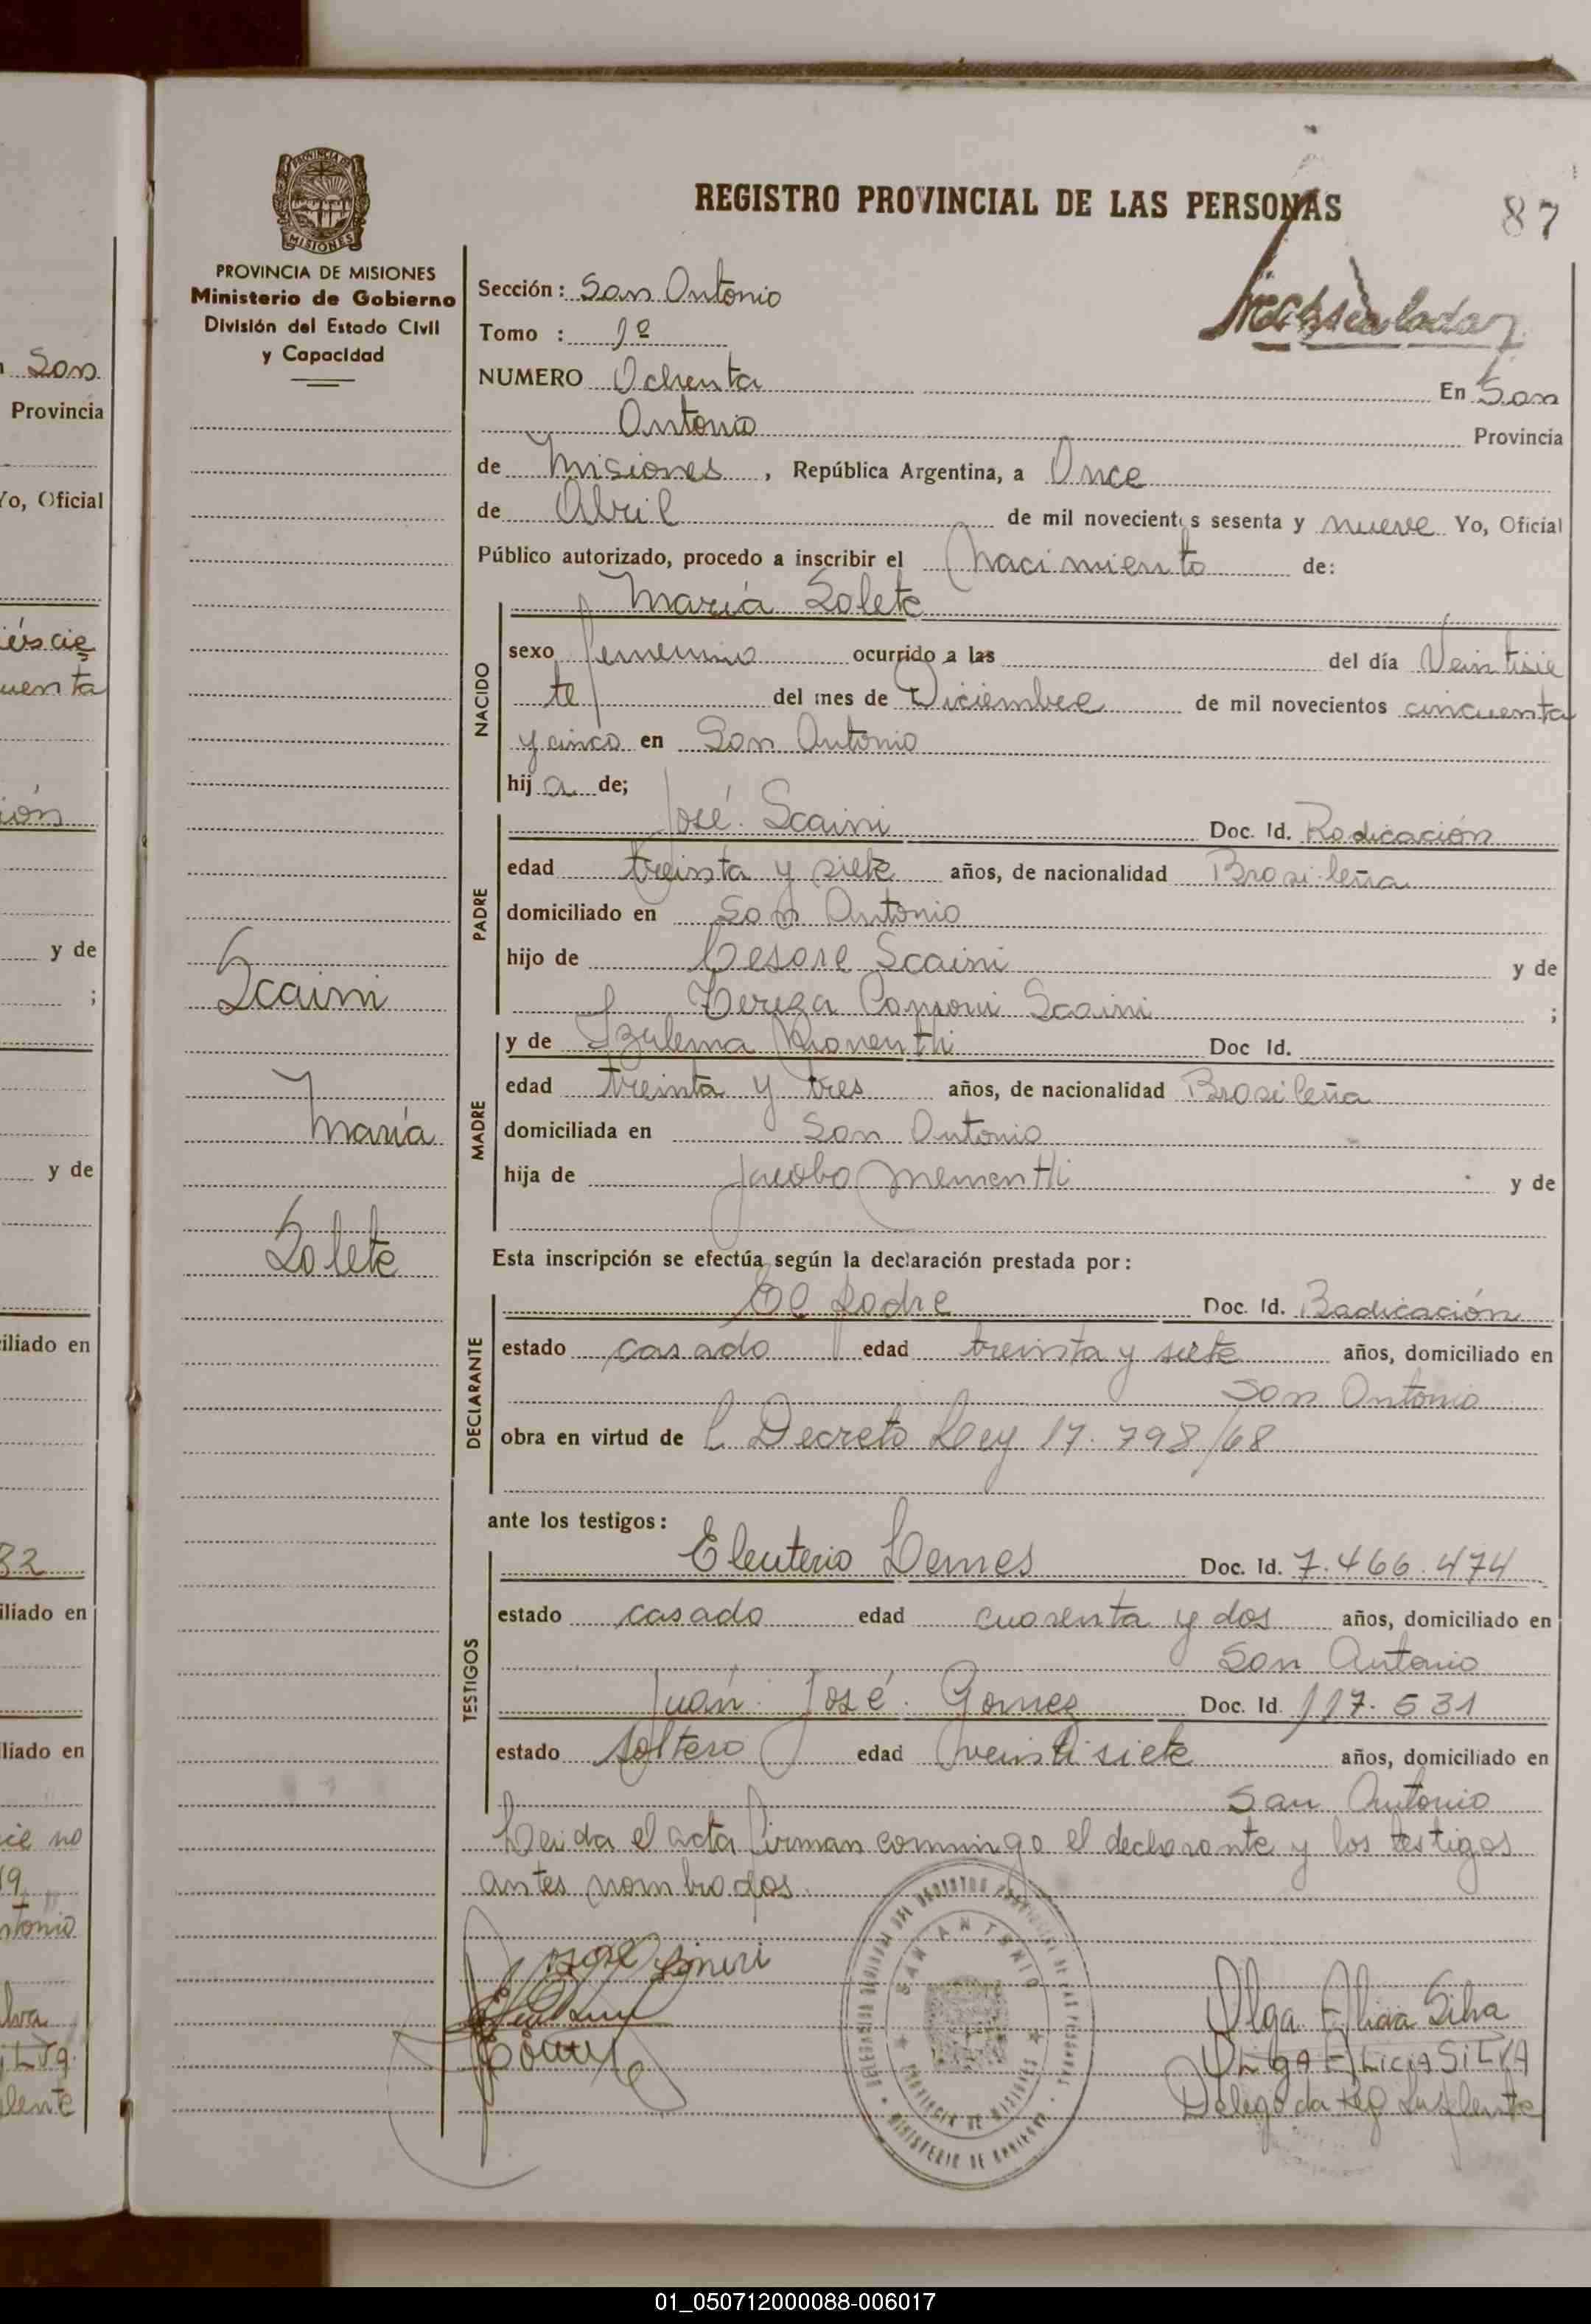 REGISTRO PROVINCIAL DE LAS PERSONAS
87
PROVINCIA DE MISIONES
Ministerio de Gobierno
División del Estado Civil
y Capacidad
Sección: San Antonio
Tomo : 1º
NUMERO Ochenta En San
Antonio Provincia
de Misiones, República Argentina, a Once
de Abril de mil novecientos sesenta y nueve Yo, Oficial
Público autorizado, procedo a inscribir el nacimiento de:
NACIDO
María Solete
sexo femenino ocurrido a las del día Veintisie
te del mes de Diciembre de mil novecientos cincuenta
y cinco en San Antonio
hija de;
PADRE
José Scaini Doc. Id. Radicación
edad treinta y siete años, de nacionalidad Brasileña
domiciliado en San Antonio
hijo de Cesare Scaini y de
Tereza Scaini ;
MADRE
y de Izulema Doc Id.
edad treinta y tres años, de nacionalidad Brasileña
domiciliada en San Antonio
hija de Jacobo Mementhi y de
Scaini
María
Solete
Esta inscripción se efectúa según la declaración prestada por:
DECLARANTE
El padre Doc. Id. Radicación
estado casado edad treinta y siete años, domiciliado en
San Antonio
obra en virtud de l Decreto Ley 17.798/68
ante los testigos:
TESTIGOS
Eleuterio Lemes Doc. Id. 7.466.474
estado casado edad cuarenta y dos años, domiciliado en
San Antonio
Juán José Gomez Doc. Id. 117.531
estado soltero edad veintisiete años, domiciliado en
San Antonio
Leida el acta firman conmingo el declarante y los testigos
antes nombrados.
SAN ANTONIO
PROVINCIA DE MISIONES
MINISTERIO DE GOBIERNO
Olga Elicia Silva
OLGA ELICIA SILVA
Delegada Reg Suplente
San
Provincia
Yo, Oficial
y de
;
y de
iliado en
82
iliado en
liado en
01_050712000088-006017